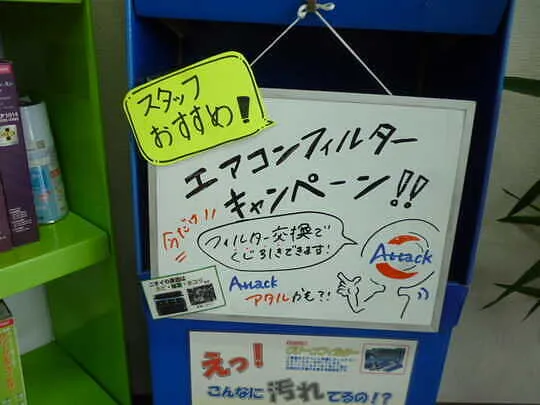 スタッフ
おすすめ!
エアコンフィルター
キャンペーン!!
今だけ!!
フィルター交換で
くじ引きできます!
Attack
Attack
アタルかも?!
ニオイの原因は
カビ・雑菌・ホコリ
えっ!
こんなに汚れてるの!?